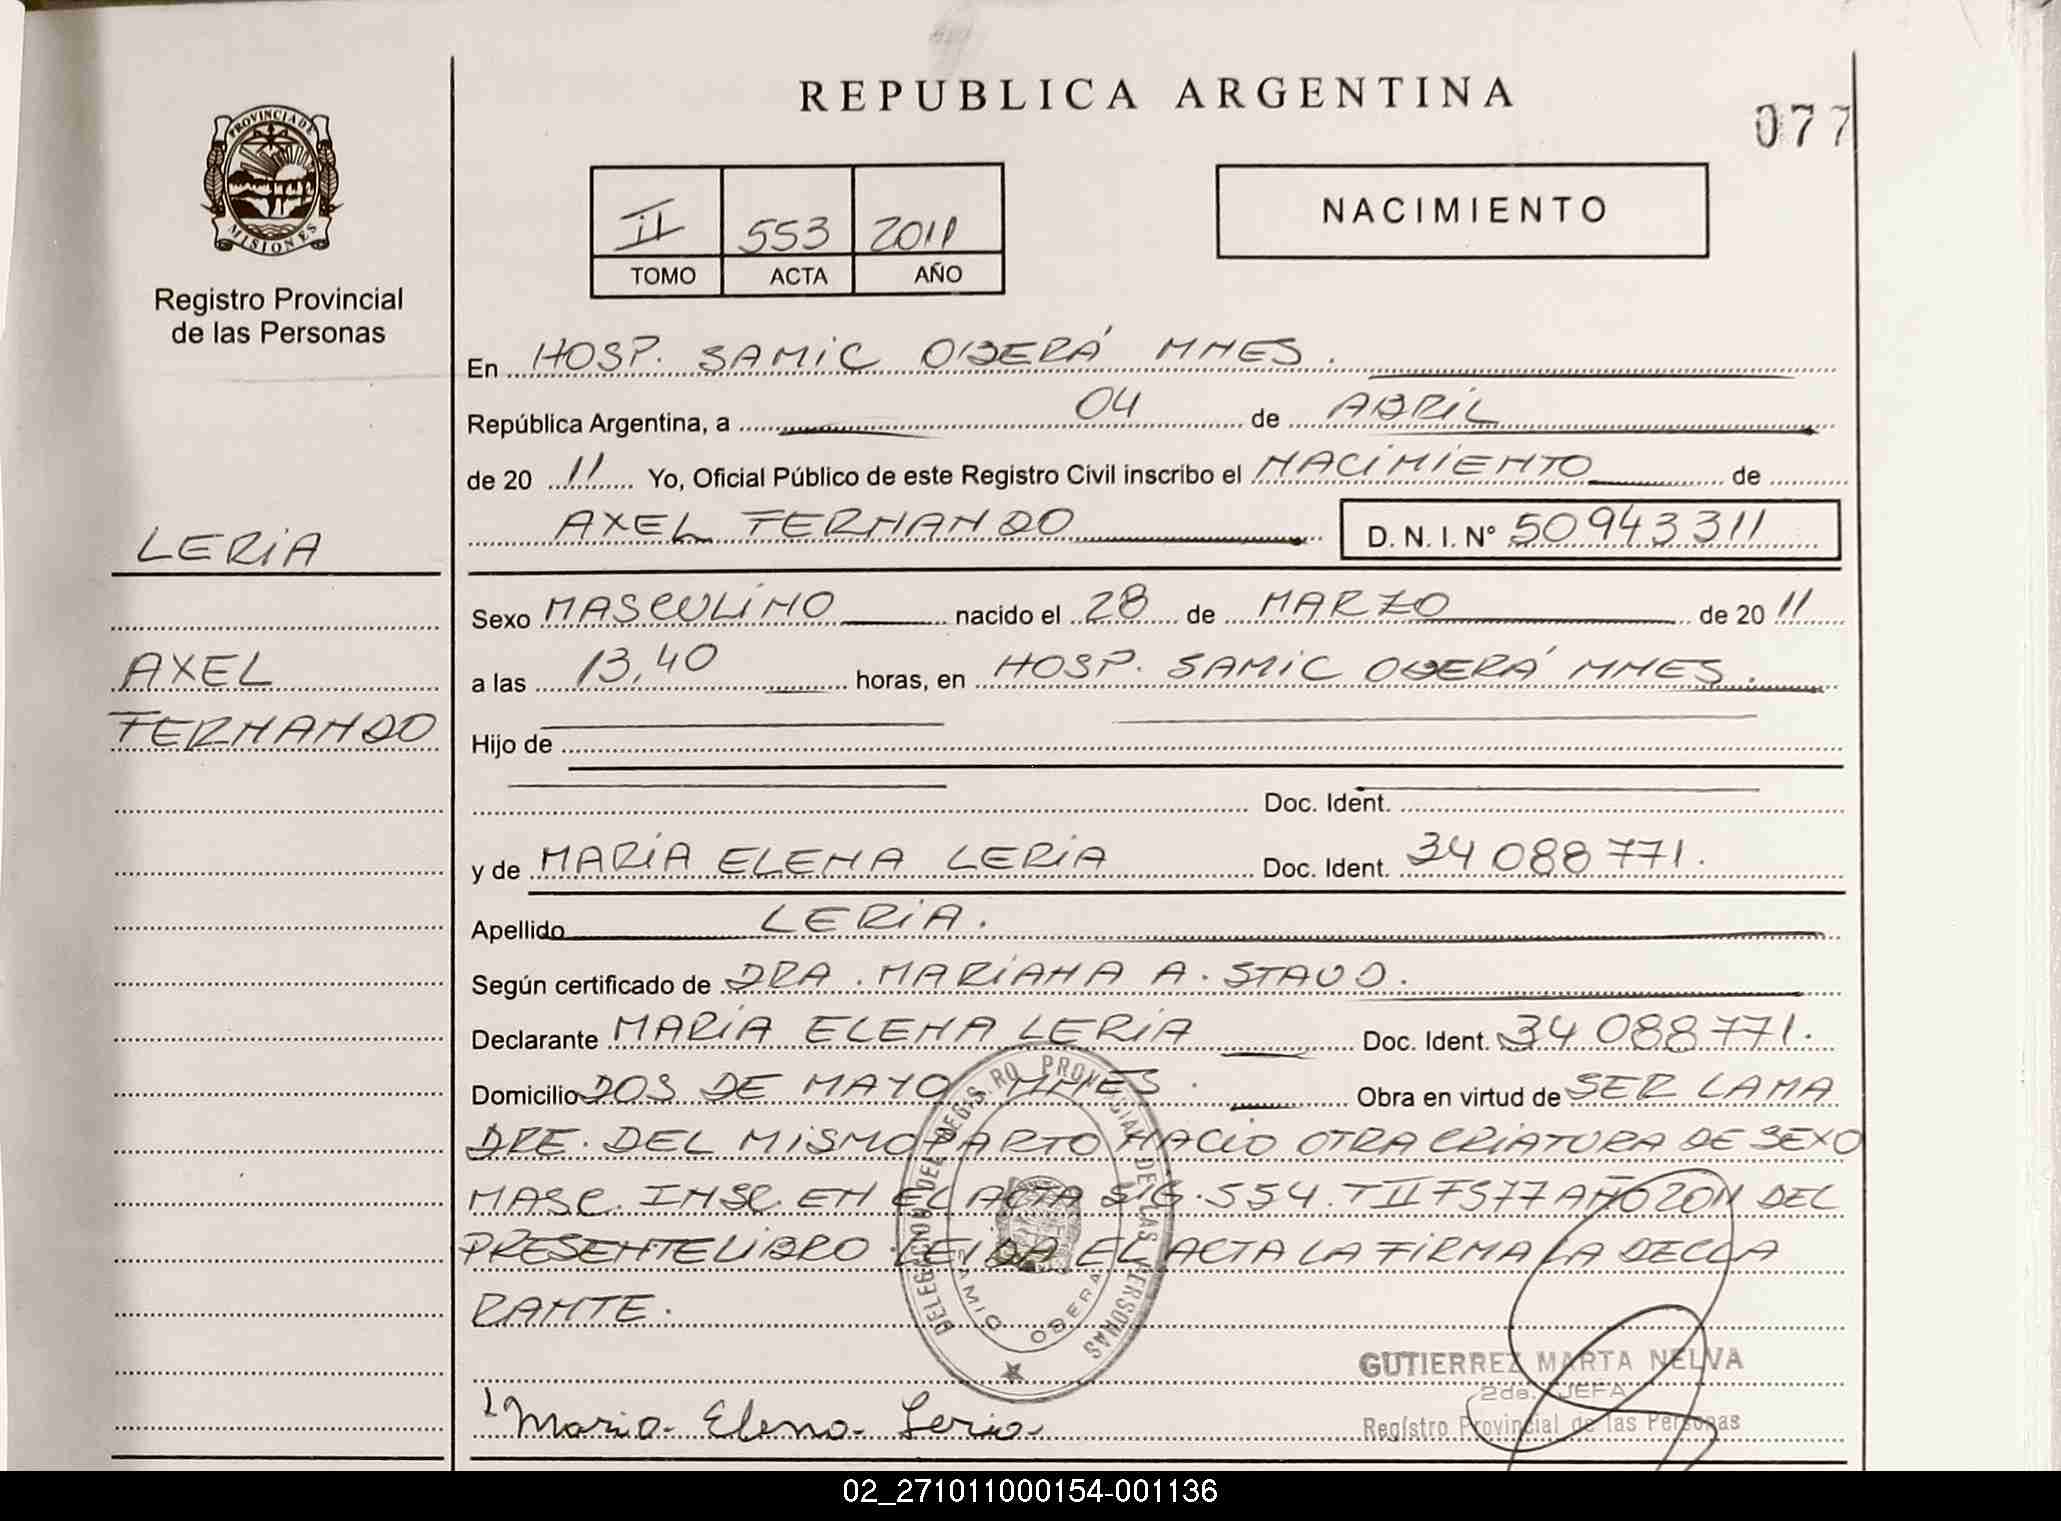 REPUBLICA ARGENTINA
077
PROVINCIA DE
MISIONES
Registro Provincial
de las Personas
II 553 2011
TOMO ACTA AÑO
NACIMIENTO
En HOSP. SAMIC OBERÁ MNES.
República Argentina, a 04 de ABRIL
de 20 11 Yo, Oficial Público de este Registro Civil inscribo el NACIMIENTO de
AXEL FERNANDO D. N. I. N° 50943311
LERIA
Sexo MASCULINO nacido el 28 de MARZO de 20 11
AXEL
a las 13,40 horas, en HOSP. SAMIC OBERÁ MNES.
FERNANDO
Hijo de
Doc. Ident.
y de MARIA ELENA LERIA Doc. Ident. 34 088 771.
Apellido LERIA.
Según certificado de DRA. MARIANA A. STAUD.
Declarante MARIA ELENA LERIA Doc. Ident. 34 088 771.
Domicilio DOS DE MAYO MNES. Obra en virtud de SER LA MA
DRE. DEL MISMO PARTO NACIO OTRA CRIATURA DE SEXO
MASC. INSC. EN EL ACTA SIG. 554. T II FS 77 AÑO 2011 DEL
PRESENTE LIBRO LEIDA EL ACTA LA FIRMA LA DECLA
RANTE.
DELEGACION DEL REGISTRO PROVINCIAL DE LAS PERSONAS
OBERA
GUTIERREZ MARTA NELVA
2da. JEFA
Registro Provincial de las Personas
Maria Elena Leria
02_271011000154-001136